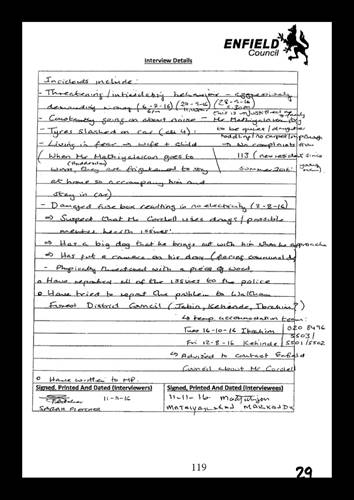 ENFIELD
Council
Interview Details
Incidents include:
- Threatening / intimidating behaviour - aggressively
demanding money (6-7-16)
- Constantly going on about noise - Mr Mathiyalagan
- Tyres slashed on car (x4):
to be quiet /
- Living in fear → wife + child
→ No complaints from
(When Mr Mathiyalagan goes to
113 (new resident since
work, they are frightened to stay
at home so accompany him and
stay in car)
- Damaged fuse box resulting in no electricity (8-8-16)
⇒ Suspect that Mr Cordell uses drugs / possible
mental health issues.
⇒ Has a big dog that he brings out with him when he approaches
⇒ Has put a camera on his door (facing communal)
- Physically threatened with a piece of wood.
o Have reported all of the issues to the police
o Have tried to report the problem to Waltham
Forest District Council (Tobin, Kehinde, Ibrahim?)
↳ temp accommodation team:
Tues 16-10-16 Ibrahim
020 8496
Fri 12-8-16 Kehinde
5503 /
5501 / 5502
↳ Advised to contact Enfield
Council about Mr Cordell
o Have written to MP.
Signed, Printed And Dated (Interviewers)
Signed, Printed And Dated (Interviewees)
11-11-16
11-11-16
SARAH FLETCHER
119
29